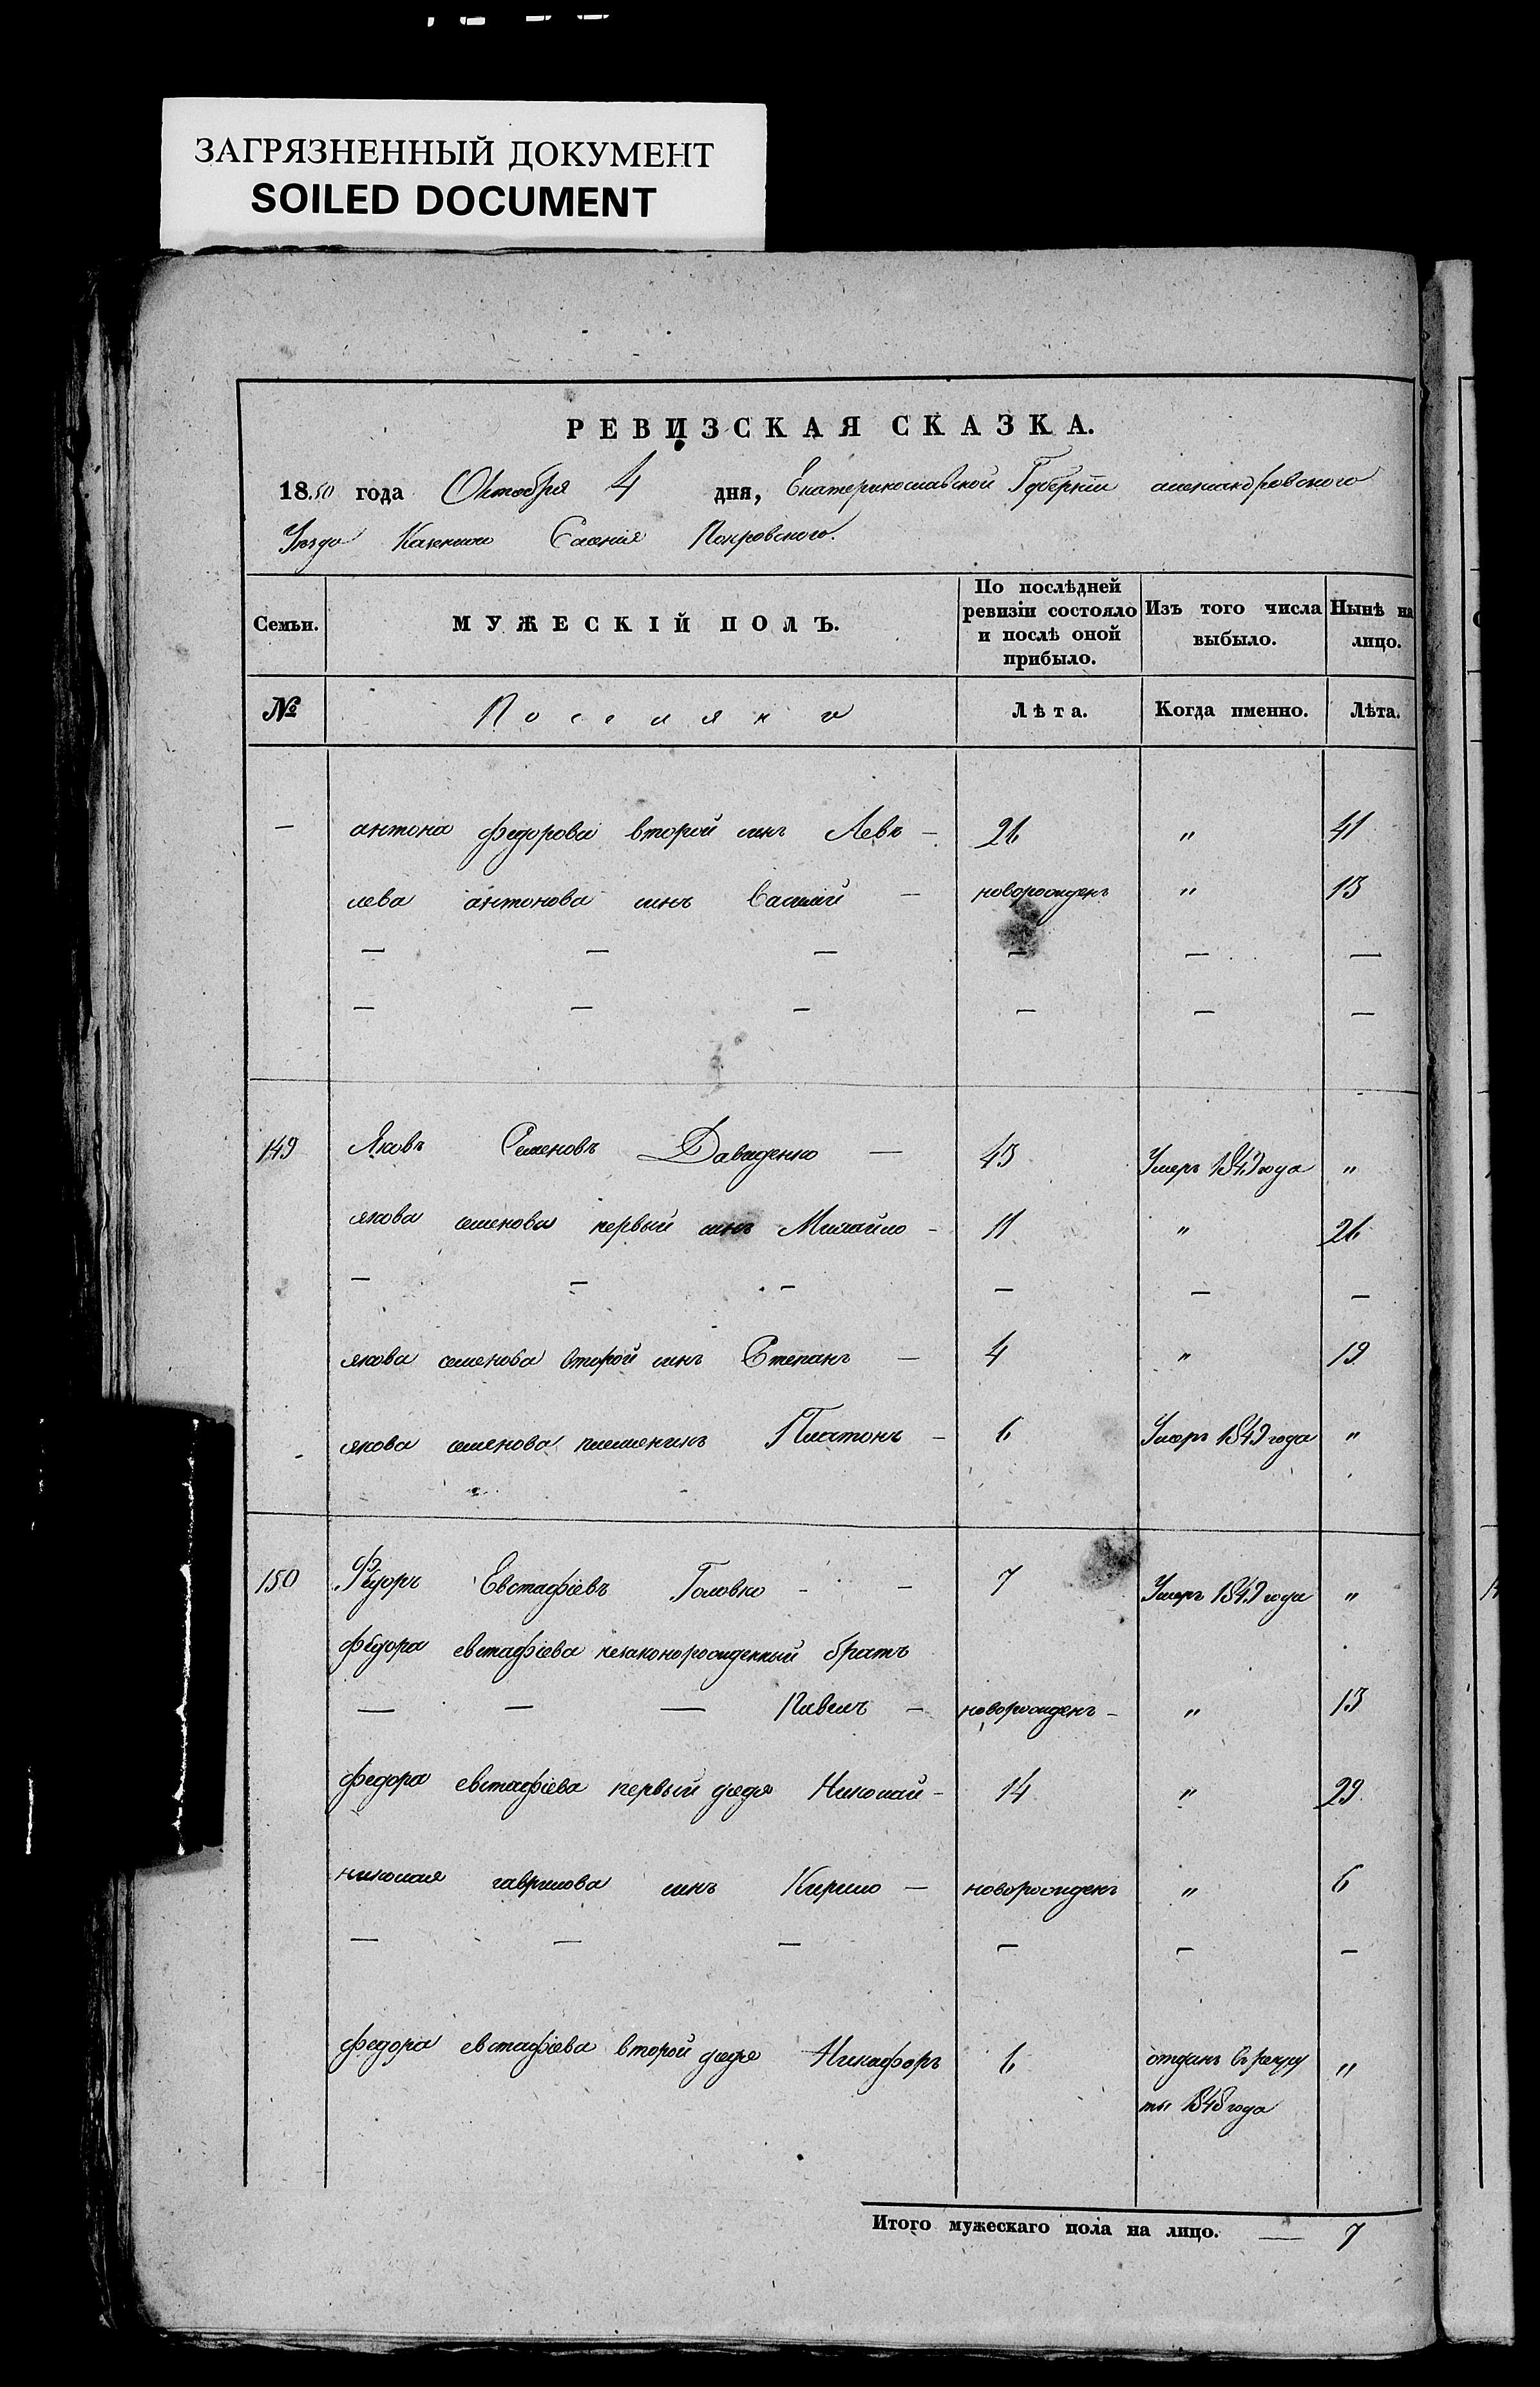 ЗАГРЯЗНЕННЫЙ ДОКУМЕНТ
SOILED DOCUMENT
РЕВИЗСКАЯ СКАЗКА.
1850 года Октября 4 дня, Екатеринославской Губерніи александровского
Уѣзда Казенного Селенія Покровского.
Семьи. МУЖЕСКІЙ ПОЛЪ. По послѣдней ревизіи состояло и послѣ оной прибыло. Изъ того числа выбыло. Нынѣ на лицо.
№ Поселяне Лѣта. Когда именно. Лѣта.
— антона федорова второй синъ Левъ — 26 " 41
лева антонова синъ Василій — новорожденъ " 13
— — — — — —
— — — — — —
149 Яковъ Семеновъ Давиденко — 43 Умеръ 1849 года "
якова семенова первый синъ Михайло — 11 " 26
— — — — — —
якова семенова второй синъ Степанъ — 4 " 19
якова семенова племянникъ Платонъ — 6 Умеръ 1849 года "
150 Федоръ Евстафіевъ Головко - — 7 Умеръ 1849 года "
федора евстафіева незаконорожденный братъ
— — — Павелъ — новорожденъ — " 13
федора евстафіева первый дядя Николай — 14 " 29
николая гаврилова синъ Кирило — новорожденъ " 6
— — — — — —
федора евстафіева второй дядя Никифоръ 6 отданъ в рекру "
ты 1848 года
Итого мужескаго пола на лицо. — 7